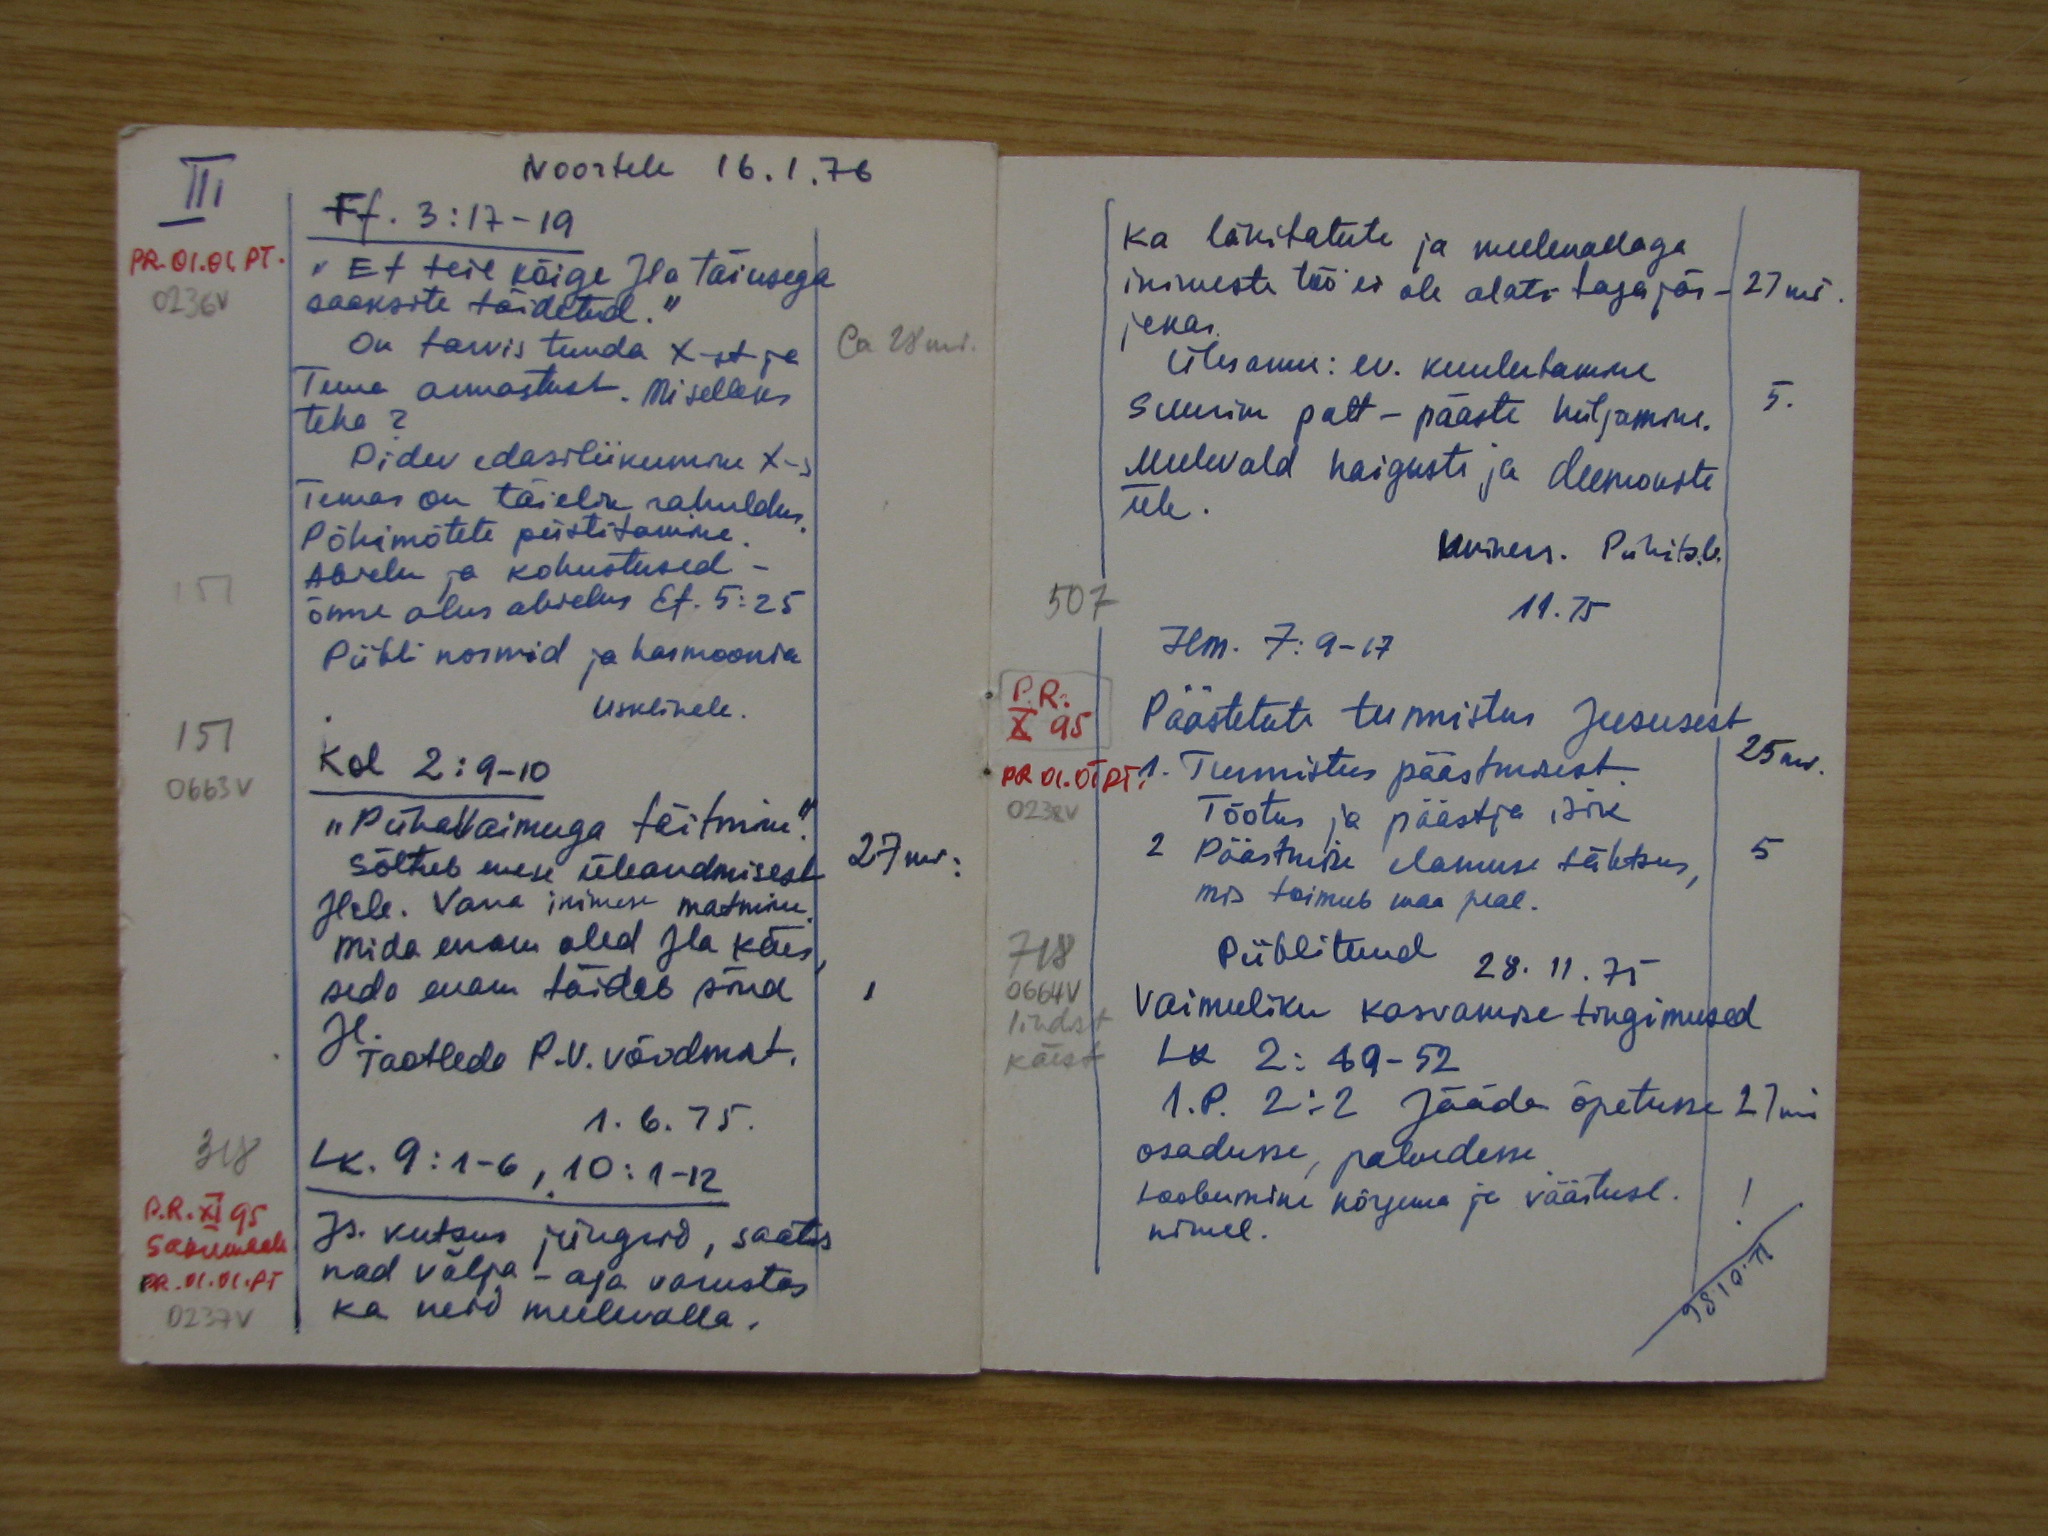 III
Noortele 16.1.76
PR.01.01.PT.
0236V
Ef. 3:17-19
"Et teie kõige Jla täiusega
saaksite täidetud."
Ca 28 mi.
On tarvis tunda X-st ja
Tema armastust. Miselleks
teha?
Pidev edasiliikumine X-s
Temas on täielik rahuldus.
Põhimõtete püstitamine.
Abielu ja kohustused -
õnne alus abielus Ef. 5:25
151
Piibli normid ja harmoonia
Usklikele.
151
0663V
Kol 2:9-10
"Püha Vaimuga täitmine".
27 mi:
Sõltub enese üleandmisest
Jlale. Vana inimese matmine.
Mida enam oled Jla käes,
sedo enam täidab sind
Jl.
Taotleda P.V. võidmist.
1.6.75.
318
P.R. XI 95
Saaremaale
PR.01.01.PT
0237V
Lk. 9:1-6, 10:1-12
Js. kutsus jüngrid, saatis
nad välja - aga varustas
ka neid meelevalla.
Ka läkitatute ja meelevallaga
inimeste töö ei ole alati tagajär-
27 mi.
jekas.
Ülesanne: ev. kuulutamine
5.
Suurim patt - pääste hülgamine.
Meelevald haiguste ja deemonite
üle.
Pühits.l.
507
11.75
Ilm. 7:9-17
P.R.:
X 95
PR 01.01 PT.
0238V
Päästetute tunnistus Jeesusest
25 mi.
1. Tunnistus päästmisest.
Tõotus ja päästja isik
2 Päästmise elamuse tähtsus,
5
mis toimub maa peal.
718
0664V
lindst
käest
Piiblitund 28.11.75
Vaimuliku kasvamise tingimused
Lk 2:49-52
1.P. 2:2 Jääda õpetusse
27 mi
osadusse, palvedesse
Loobumine kõrgema ja väärtusl.
!
nimel.